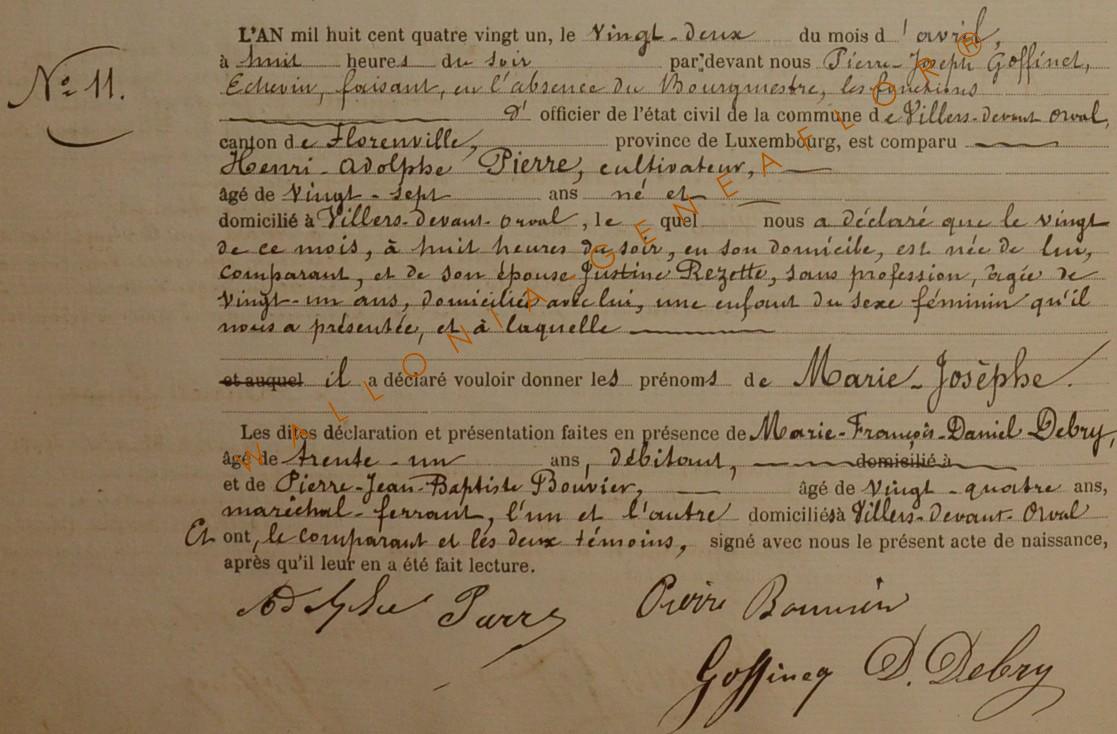 N° 11.
L'AN mil huit cent quatre vingt un, le vingt-deux du mois d'avril,
à huit heures du soir par devant nous Pierre-Joseph Goffinet,
Echevin, faisant, en l'absence du Bourgmestre, les fonctions
d' officier de l'état civil de la commune de Villers-devant Orval,
canton de Florenville, province de Luxembourg, est comparu
Henri-Adolphe Pierre, cultivateur,
âgé de vingt-sept ans né et
domicilié à Villers-devant-Orval, le quel nous a déclaré que le vingt
de ce mois, à huit heures du soir, en son domicile, est née de lui,
comparant, et de son épouse Justine Rezette, sans profession, âgée de
vingt-un ans, domiciliée avec lui, une enfant du sexe féminin qu'il
nous a présentée, et à laquelle
et auquel il a déclaré vouloir donner les prénoms de Marie-Josèphe.
Les dites déclaration et présentation faites en présence de Marie-François-Daniel Debry,
âgé de trente-un ans, débitant, domicilié à
et de Pierre-Jean-Baptiste Bouvier, âgé de vingt-quatre ans,
maréchal-ferrant, l'un et l'autre domiciliés à Villers-devant-Orval
Et ont, le comparant et les deux témoins, signé avec nous le présent acte de naissance,
après qu'il leur en a été fait lecture.
Adolphe Pierre Pierre Bouvier
Goffinet D. Debry
WALLONIA GENEAFLOR ®